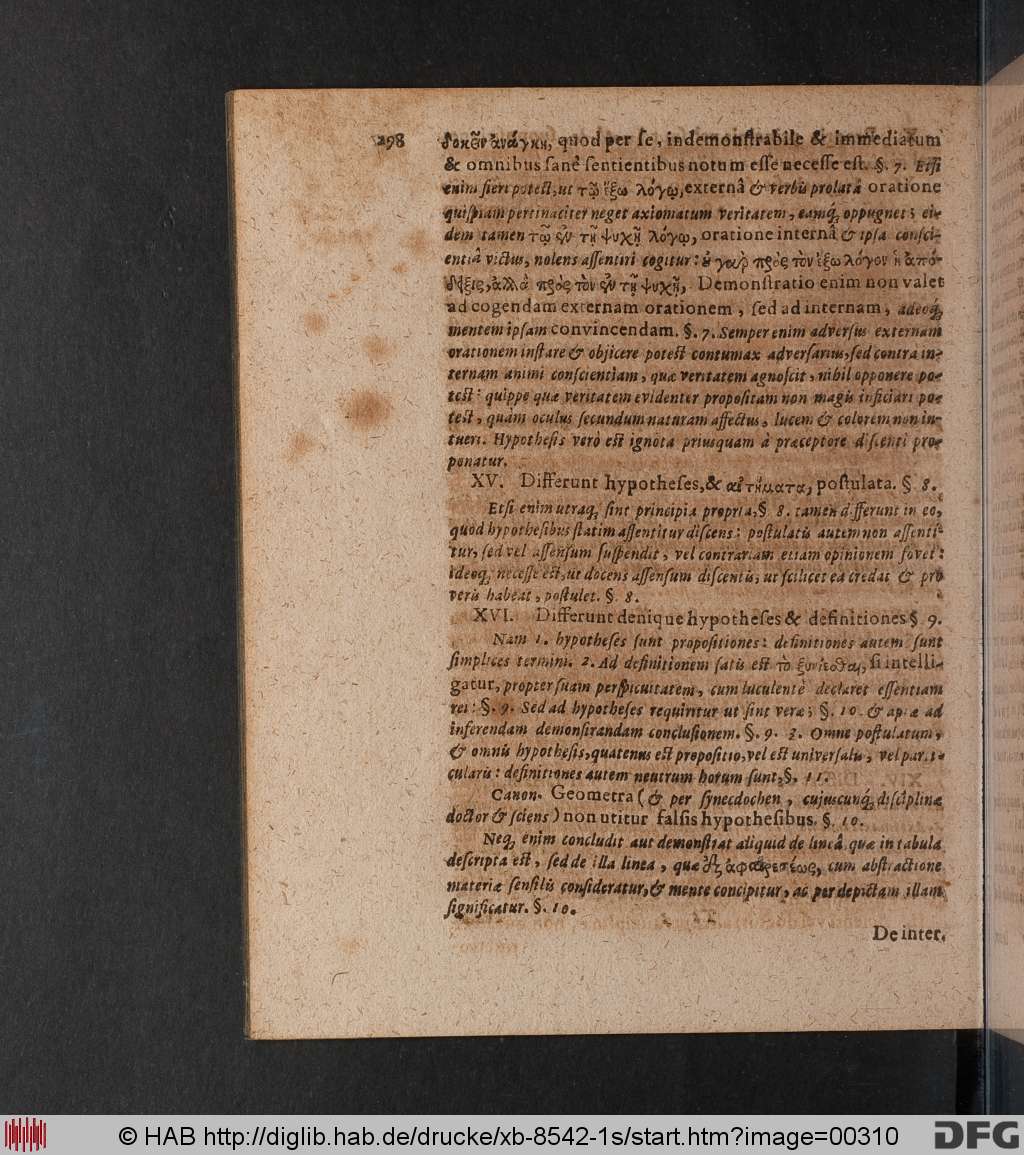 298
δοκεῖν ἀνάγκη, quod per ſe, indemonſtrabile & immediatum
& omnibus ſanè ſentientibus notum eſſe neceſſe eſt. §. 7. Etſi
enim fieri poteſt, ut τῷ ἔξω λόγῳ, externâ & verbis prolatâ oratione
quiſpiam pertinaciter neget axiomatum veritatem, eamq́; oppugnet; ei⸗
dem tamen τῷ ἐν τῇ ψυχῇ λόγῳ, oratione internâ & ipſa conſci⸗
entiâ victus, nolens aſſentiri cogitur: ὀ γαρ πρὸς τὸν ἔξω λόγον ἡ ἀπό⸗
δειξις, ἀλλὰ πρὸς τὸν ἐν τῇ ψυχῇ, Demonſtratio enim non valet
ad cogendam externam orationem, ſed ad internam, adeoq́;
mentem ipſam convincendam. §. 7. Semper enim adverſus externam
orationem inſtare & objicere poteſt contumax adverſarius, ſed contra in⸗
ternam animi conſcientiam, quæ veritatem agnoſcit, nihil opponere po⸗
teſt: quippe quæ veritatem evidenter propoſitam non magis inficiari po⸗
teſt, quàm oculus ſecundum naturam affectus, lucem & colorem non in⸗
tueri. Hypotheſis verò eſt ignota priusquam à præceptore diſcenti pro⸗
ponatur.
XV. Differunt hypotheſes, & αἰτήματα, poſtulata. § 8.
Etſi enim utraq; ſint principia propria, §. 8. tamen differunt in eo,
quod hypotheſibus ſtatim aſſentitur diſcens: poſtulatis autem non aſſenti⸗
tur, ſed vel aſſenſum ſuſpendit, vel contrariam etiam opinionem fovet:
ideoq; neceſſe eſt, ut docens aſſenſum diſcentis, ut ſcilicet ea credat & pro
veris habeat, poſtulet. §. 8.
XVI. Differunt denique hypotheſes & definitiones §. 9.
Nam 1. hypotheſes ſunt propoſitiones: definitiones autem ſunt
ſimplices termini. 2. Ad definitionem ſatis eſt τὸ ξυνίεσθαι, ſi intelli⸗
gatur, propter ſuam perſpicuitatem, cum luculentè declaret eſſentiam
rei: §. 9. Sed ad hypotheſes requiritur ut ſint veræ; §. 10. & aptæ ad
inferendam demonſtrandam concluſionem. §. 9. 3. Omne poſtulatum,
& omnis hypotheſis, quatenus eſt propoſitio, vel eſt univerſalis, vel parti⸗
cularis: definitiones autem neutrum horum ſunt, §. 11.
Canon. Geometra (& per ſynecdochen, cujuscunq́; diſciplinæ
doctor & ſciens) non utitur falſis hypotheſibus. §. 10.
Neq; enim concludit aut demonſtrat aliquid de lineâ quæ in tabula
deſcripta eſt, ſed de illa linea, quæ ἐξ ἀφαιρεσέως, cum abſtractione
materiæ ſenſilis conſideratur, & mente concipitur, ac per depictam illam
ſignificatur. §. 10.
De inter.
© HAB http://diglib.hab.de/drucke/xb-8542-1s/start.htm?image=00310
DFG